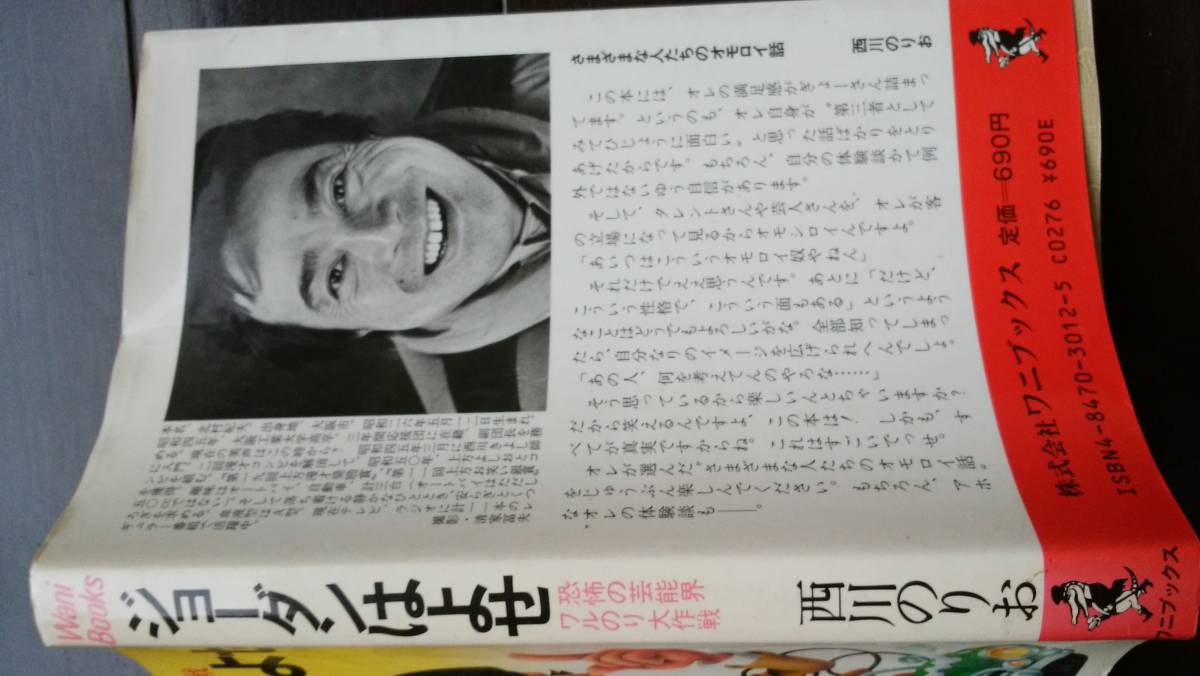 西川のりお
さまざまな人たちのオモロイ話
この本には、オレの満足感がぎょーさん詰まっ
てます。というのも、オレ自身が〝第三者として
みてひじょうに面白い〟と思った話ばかりをとり
あげたからです。もちろん、自分の体験談かて例
外ではないゆう自信があります。
そして、タレントさんや芸人さんを、オレが客
の立場になって見るからオモシロイんですよ。
「あいつはこういうオモロイ奴やねん」
それだけでええ思うんです。あとに「だけど、
こういう性格で、こういう面もある」というよう
なことはどうでもよろしいがな。全部知ってしまっ
たら、自分なりのイメージを広げられへんでしょ。
「あの人、何を考えてんのやろな……」
そう思っているから楽しいんとちゃいますか?
だから笑えるんですよ、この本は! しかも、す
べてが真実ですからね。これはすごいでっせ。
オレが選んだ〝さまざまな人たちのオモロイ話〟
を、じゅうぶん楽しんでください。もちろん、アホ
なオレの体験談も——。
本名、北村紀夫。出身地、大阪市。
撮影・清家富夫
株式会社ワニブックス 定価―690円
ISBN4-8470-3012-5 C0276 ¥690E
Wani
Books
ジョーダンはよせ
恐怖の芸能界
ワルのり大作戦
西川のりお
ワニブックス